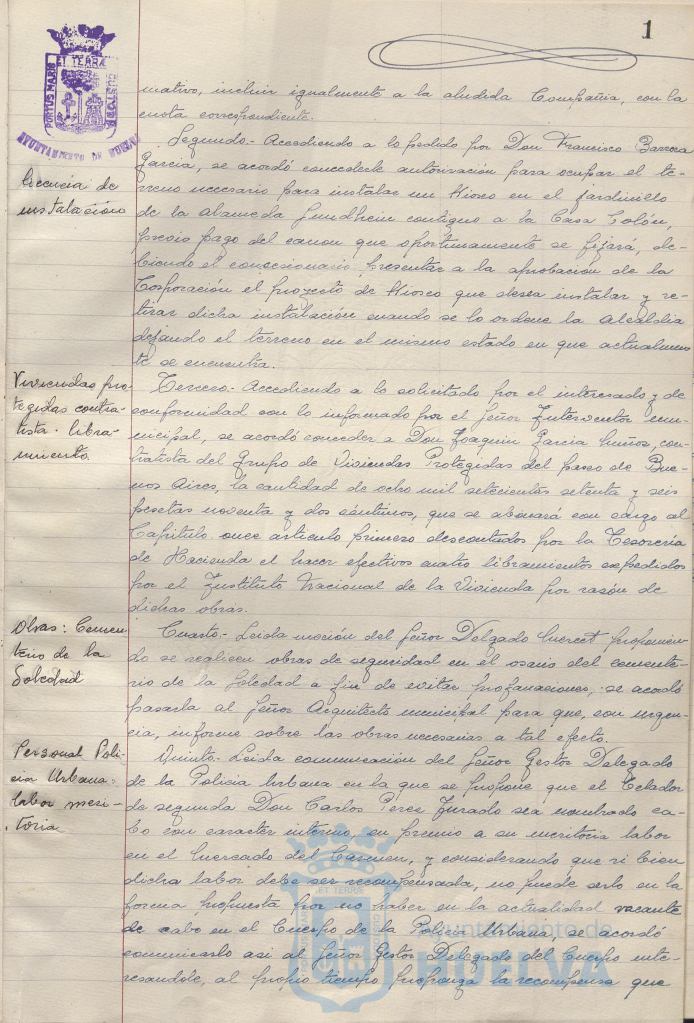 1
PORTUS MARIS
ET TERRÆ
CUSTODIA
AYUNTAMIENTO DE HUELVA
mativo, incluir igualmente a la aludida Compañia, con la
cuota correspondiente.
Licencia de
instalación
Segundo.- Accediendo a lo pedido por Don Francisco Barrera
Garcia, se acordó concederle autorización para ocupar el te-
rreno necesario para instalar un Kiosco en el jardinillo
de la Alameda Sundheim contiguo a la Casa Colón,
previo pago del canon que oportunamente se fijará, de-
biendo el concesionario presentar a la aprobación de la
Corporación el proyecto de Kiosco que desea instalar y re-
tirar dicha instalación cuando se lo ordene la Alcaldia
dejando el terreno en el mismo estado en que actualmen-
te se encuentra.
Viviendas pro-
tegidas contra-
tista. libra-
miento.
Tercero.- Accediendo a lo solicitado por el interesado y de
conformidad con lo informado por el Señor Interventor mu-
nicipal, se acordó conceder a Don Joaquin Garcia Muñoz, con-
tratista del Grupo de Viviendas Protegidas del paseo de Bue-
nos Aires, la cantidad de ocho mil setecientas setenta y seis
pesetas noventa y dos céntimos, que se abonará con cargo al
Capitulo once articulo primero descontados por la Tesoreria
de Hacienda el hacer efectivos cuatro libramientos expedidos
por el Instituto Nacional de la Vivienda por razón de
dichas obras.
Obras: Cemen-
terio de la
Soledad
Cuarto.- Leida moción del Señor Delgado proponien-
do se realicen obras de seguridad en el osario del cemente-
rio de la Soledad a fin de evitar profanaciones, se acordó
pasarla al Señor Arquitecto municipal para que, con urgen-
cia, informe sobre las obras necesarias a tal efecto.
Personal Poli-
cia Urbana:
labor meri-
toria
Quinto.- Leida comunicación del Señor Gestor Delegado
de la Policia Urbana en la que se propone que el Celador
de segunda Don Carlos Perez Jurado sea nombrado ca-
bo con caracter interino, en premio a su meritoria labor
en el Mercado del Carmen, y considerando que si bien
dicha labor debe ser recompensada, no puede serlo en la
forma propuesta por no haber en la actualidad vacante
de cabo en el Cuerpo de la Policia Urbana, se acordó
comunicarlo asi al Señor Gestor Delegado del Cuerpo inte-
resandole, al propio tiempo proponga la recompensa que
PORTUS MARIS
ET TERRA
CUSTODIA
Ayuntamiento de
HUELVA